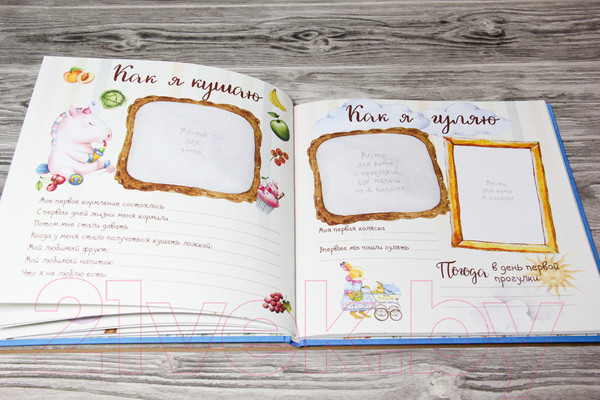 Как я кушаю
Место
для
фото
Мое первое кормление состоялось
С первых дней жизни меня кормили
Потом мне стали давать
Когда у меня стало получаться кушать ложкой:
Мой любимый фрукт:
Мой любимый напиток:
Что я не люблю есть:
Как я гуляю
Место
для фото
с прогулки,
где малыш
не в коляске
Место
для фото
в коляске
Моя первая коляска
Впервые мы пошли гулять
Погода в день первой
прогулки
21vek.by